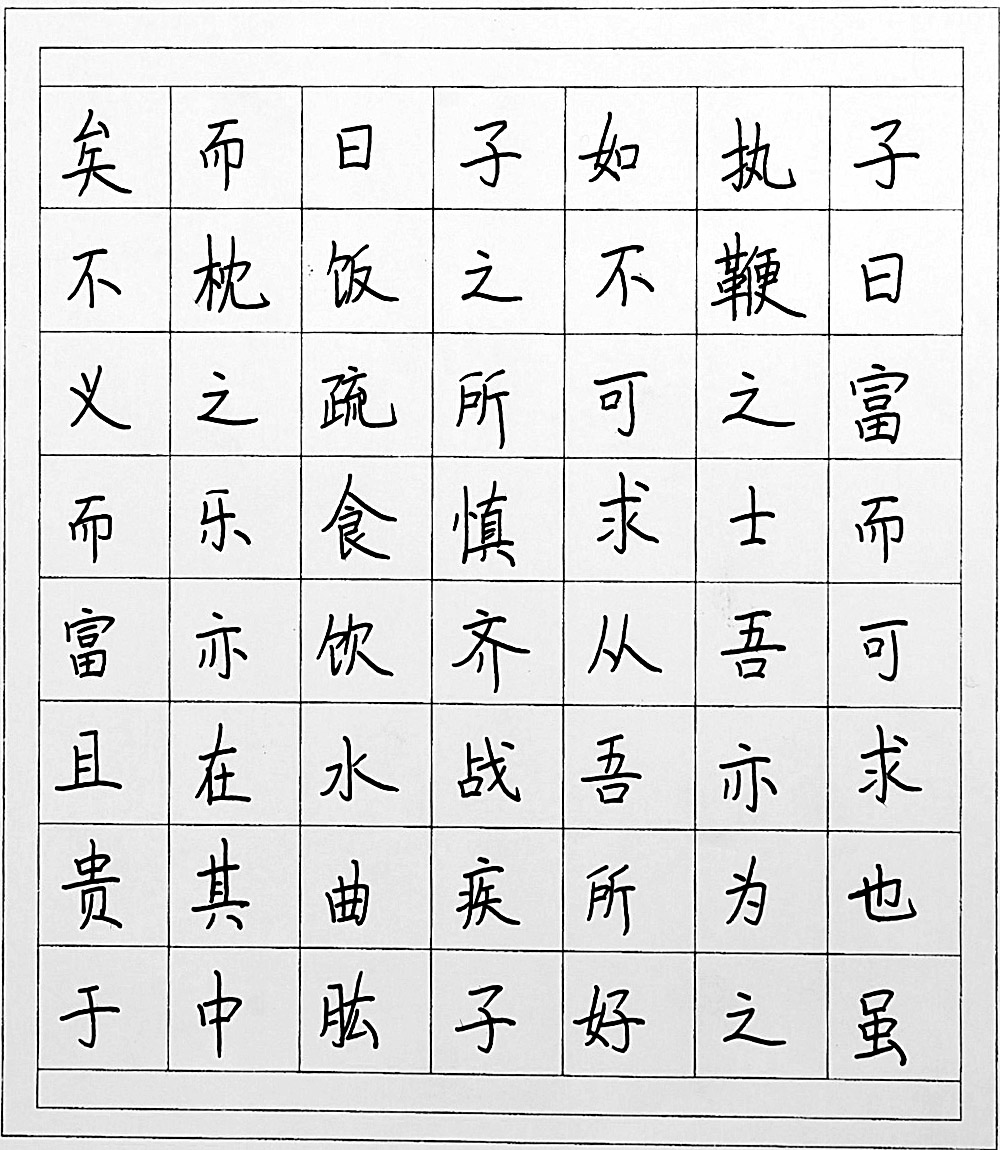 子曰富而可求也虽
执鞭之士吾亦为之
如不可求从吾所好
子之所慎齐战疾子
曰饭疏食饮水曲肱
而枕之乐亦在其中
矣不义而富且贵于